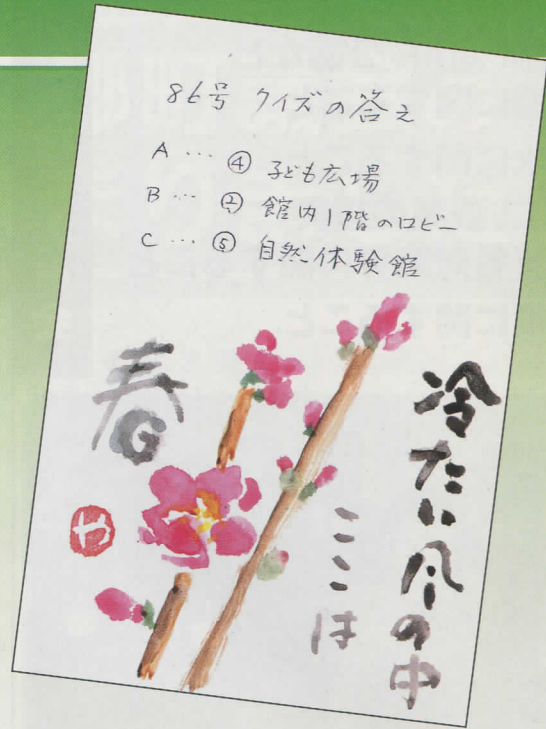 86号 クイズの答え
A … ④ 子ども広場
B … ② 館内1階のロビー
C … ⑤ 自然体験館
冷たい風の中
ここは
春
や